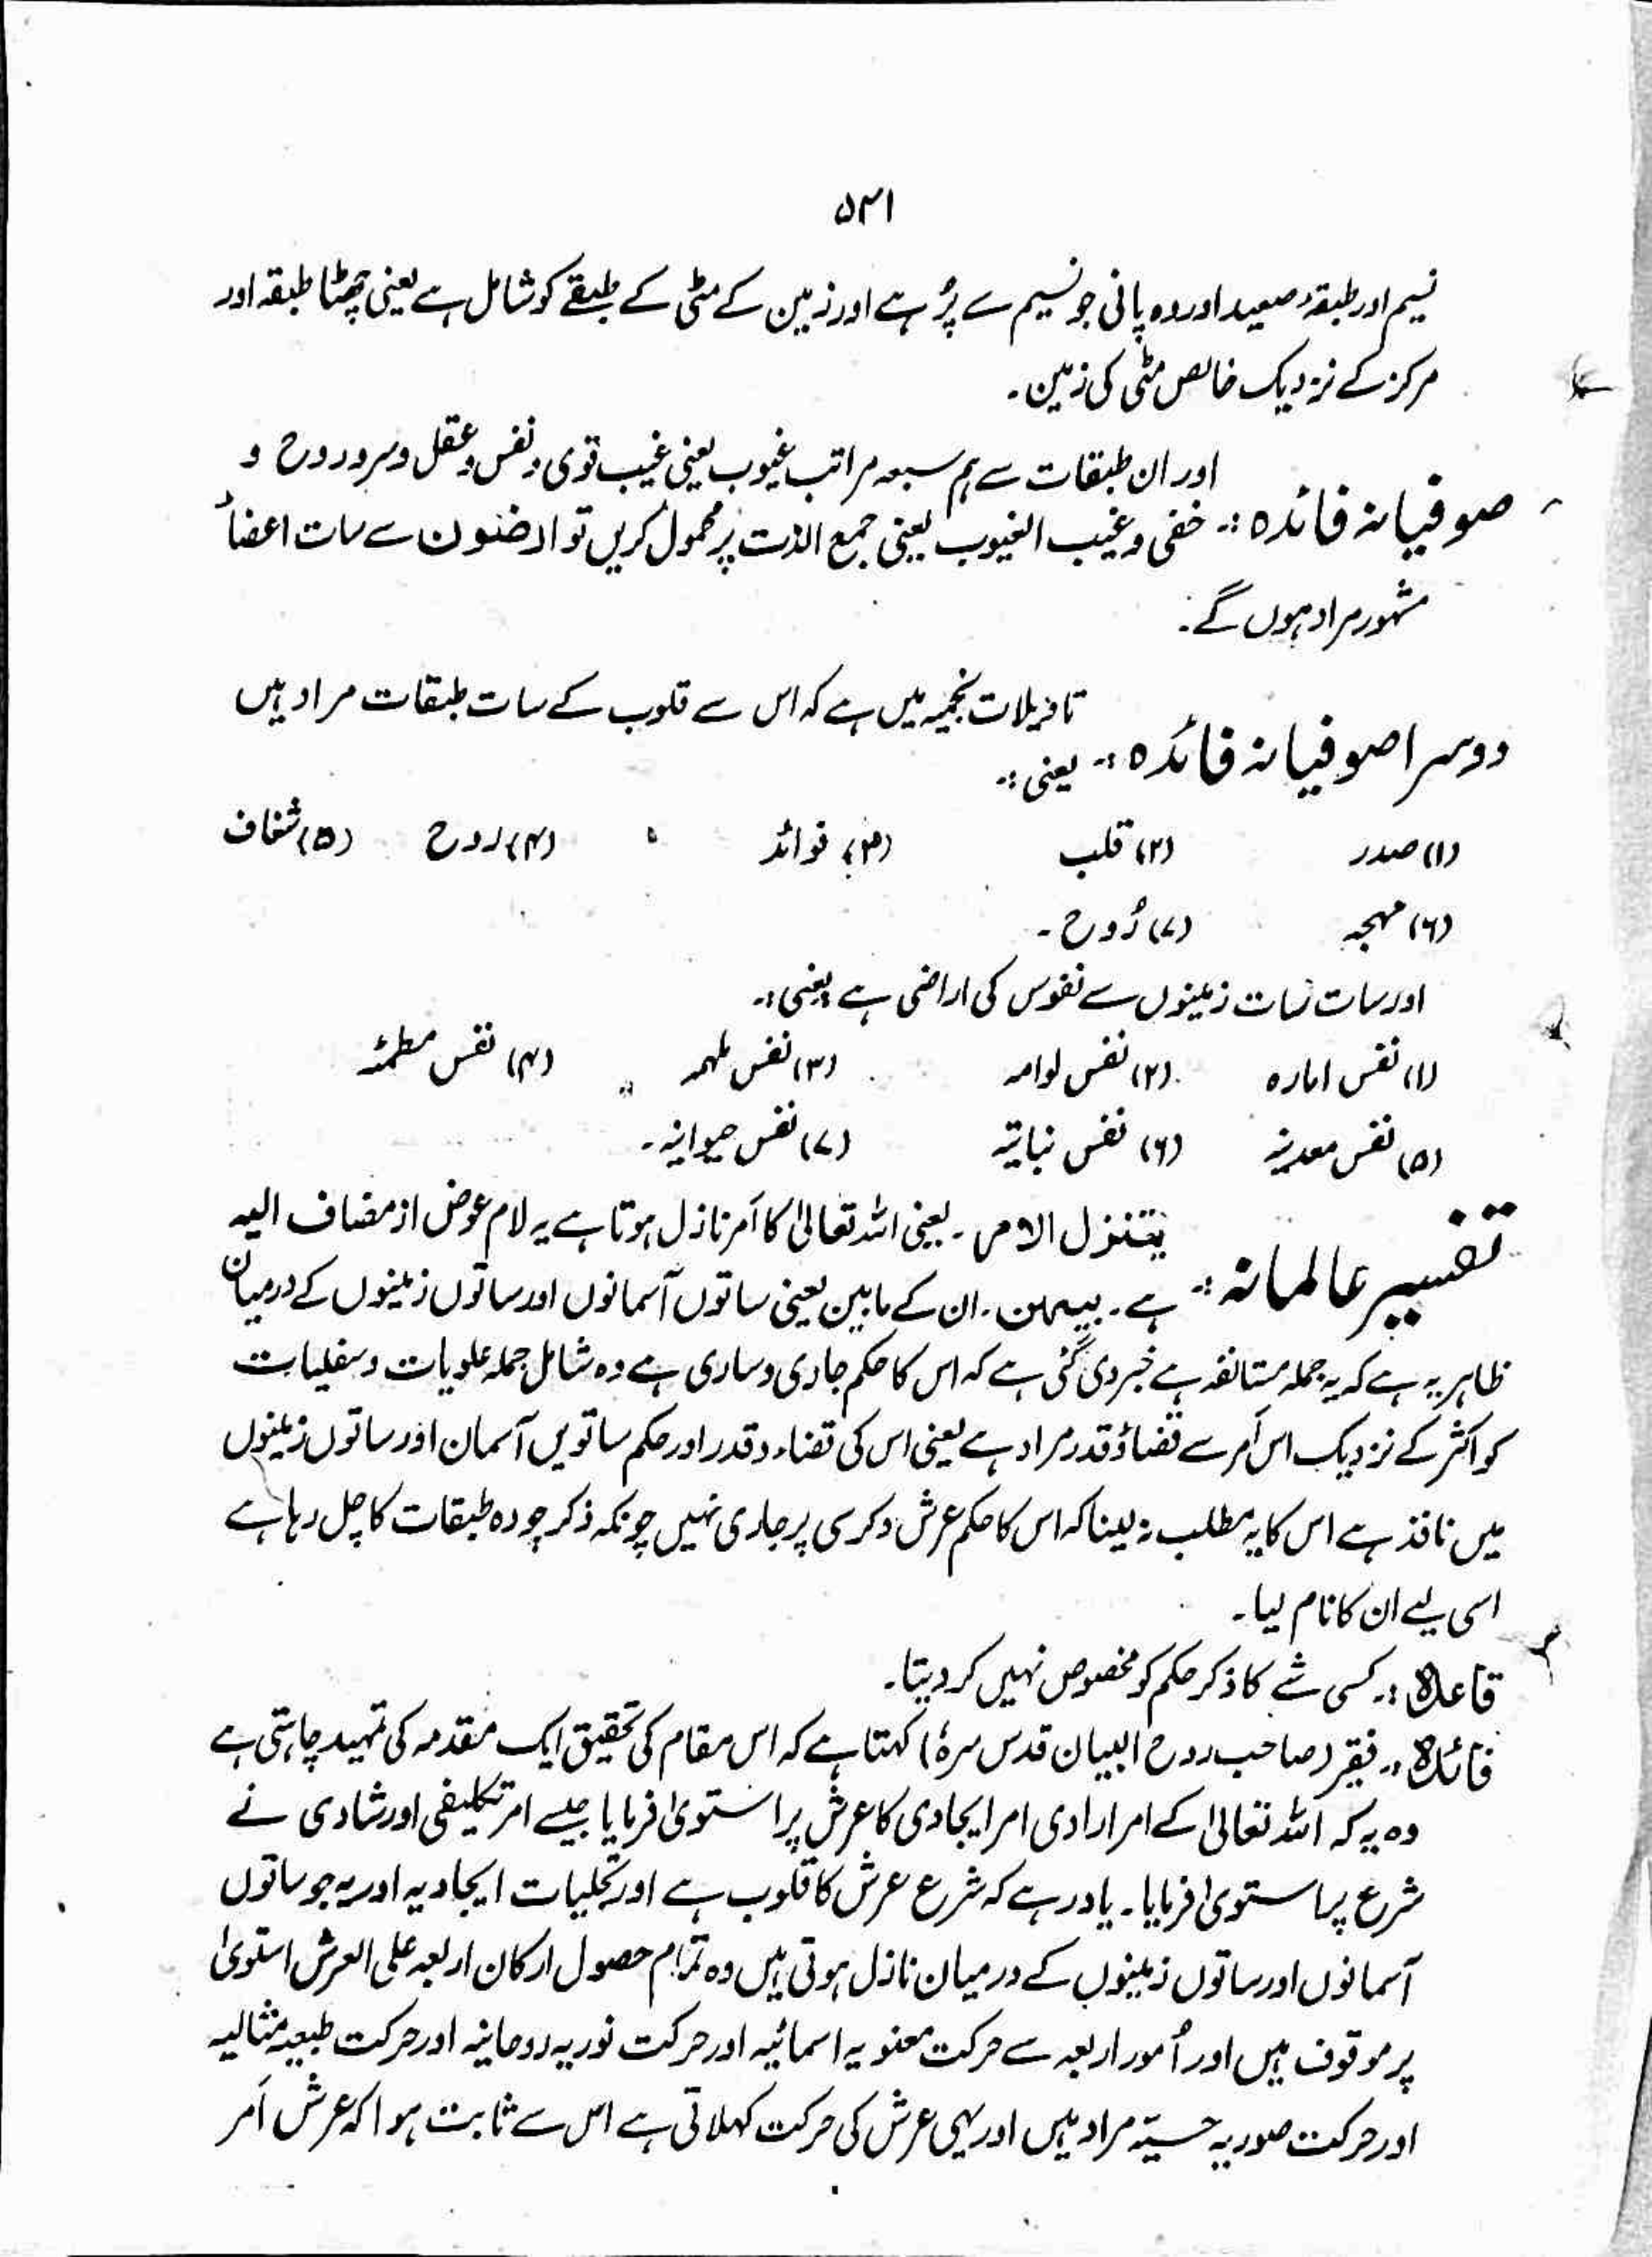 ۵۳۱
نسیم اور طبقۂ صعید اور وہ پانی جو نسیم سے پُر ہے اور زمین کے مٹی کے طبقے کو شامل ہے یعنی چھٹا طبقہ اور
مرکز کے نزدیک خالص مٹی کی زمین۔
اور ان طبقات سے ہم سبعہ مراتب غیوب یعنی غیب قوی و نفس و عقل و سر و روح و
صوفیانہ فائدہ :۔ خفی و غیب الغیوب یعنی جمع الذت پر محمول کریں تو ارضون سے سات اعضاً
مشہور مراد ہوں گے۔
تاویلات نجمیہ میں ہے کہ اس سے قلوب کے سات طبقات مراد ہیں
دوسرا صوفیانہ فائدہ :۔ یعنی :۔
(۱) صدر (۲) قلب (۳) فوائد (۴) روح (۵) شغاف
(۶) مہجہ (۷) رُوح۔
اور سات سات زمینوں سے نفوس کی اراضی ہے یعنی :۔
(۱) نفس امارہ (۲) نفس لوامہ (۳) نفس ملہمہ (۴) نفس مطمئنہ
(۵) نفس معدنیہ (۶) نفس نباتیہ (۷) نفس حیوانیہ۔
یتنزل الامر۔ یعنی اللہ تعالیٰ کا اَمر نازل ہوتا ہے یہ لام عوض از مضاف الیہ
تفسیر عالمانہ :۔ ہے۔ بینہن۔ ان کے مابین یعنی ساتوں آسمانوں اور ساتوں زمینوں کے درمیان
ظاہر یہ ہے کہ یہ جملہ مستانفہ ہے خبر دی گئی ہے کہ اس کا حکم جاری و ساری ہے وہ شامل جملہ علویات و سفلیات
کو اکثر کے نزدیک اس اَمر سے قضاؤ قدر مراد ہے یعنی اس کی قضاء و قدر اور حکم ساتویں آسمان اور ساتوں زمینوں
میں نافذ ہے اس کا یہ مطلب نہ لینا کہ اس کا حکم عرش و کرسی پر جاری نہیں چونکہ ذکر چودہ طبقات کا چل رہا ہے
اسی لیے ان کا نام لیا۔
قاعدہ :۔ کسی شے کا ذکر حکم کو مخصوص نہیں کر دیتا۔
فائدہ :۔ فقیر (صاحب روح البیان قدس سرہٗ) کہتا ہے کہ اس مقام کی تحقیق ایک مقدمہ کی تمہید چاہتی ہے
وہ یہ کہ اللہ تعالیٰ کے امر ارادی امر ایجادی کا عرش پر استویٰ فرمایا جیسے امر تکلیفی اور شادی نے
شرع پر استویٰ فرمایا۔ یاد رہے کہ شرع عرش کا قلوب ہے اور تجلیات ایجادیہ اور یہ جو ساتوں
آسمانوں اور ساتوں زمینوں کے درمیان نازل ہوتی ہیں وہ تمام حصول ارکان اربعہ علی العرش استویٰ
پر موقوف ہیں اور اُمور اربعہ سے حرکت معنویہ اسمائیہ اور حرکت نوریہ روحانیہ اور حرکت طبعیہ مثالیہ
اور حرکت صوریہ حسیّہ مراد ہیں اور یہی عرش کی حرکت کہلاتی ہے اس سے ثابت ہوا کہ عرش اَمر